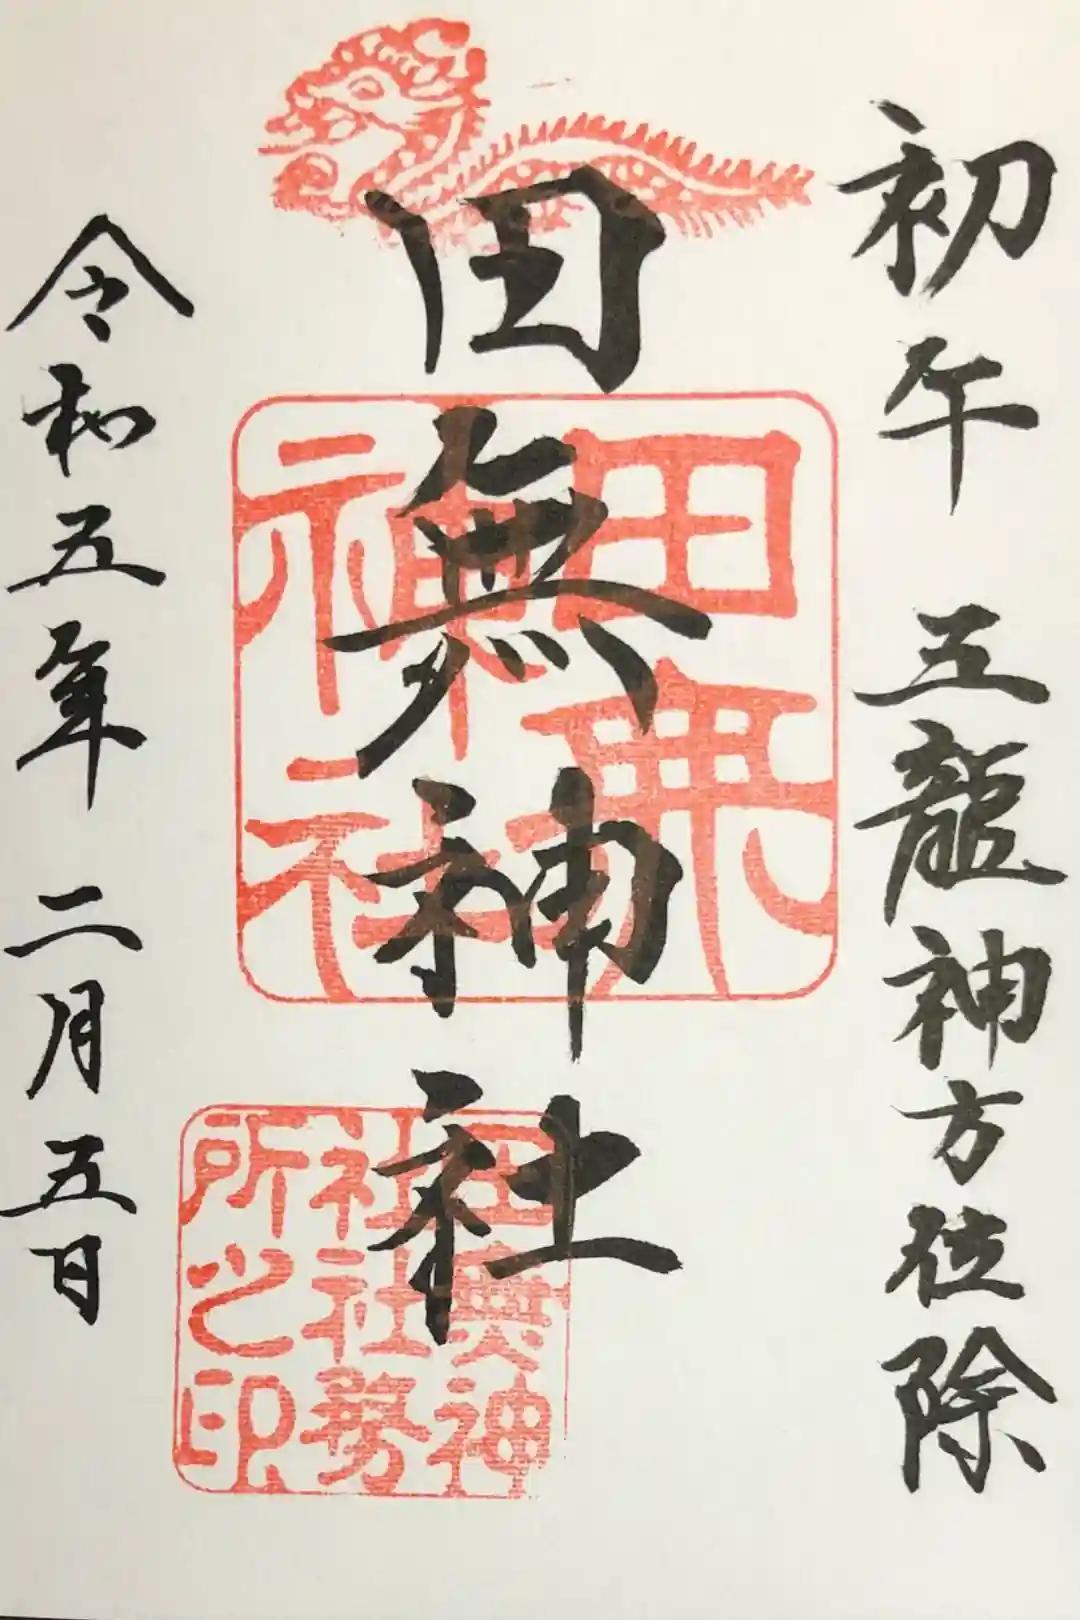 初午 五龍神方位除
田無神社
令和五年 二月五日
田無
神社
田無神
社社務
所之印